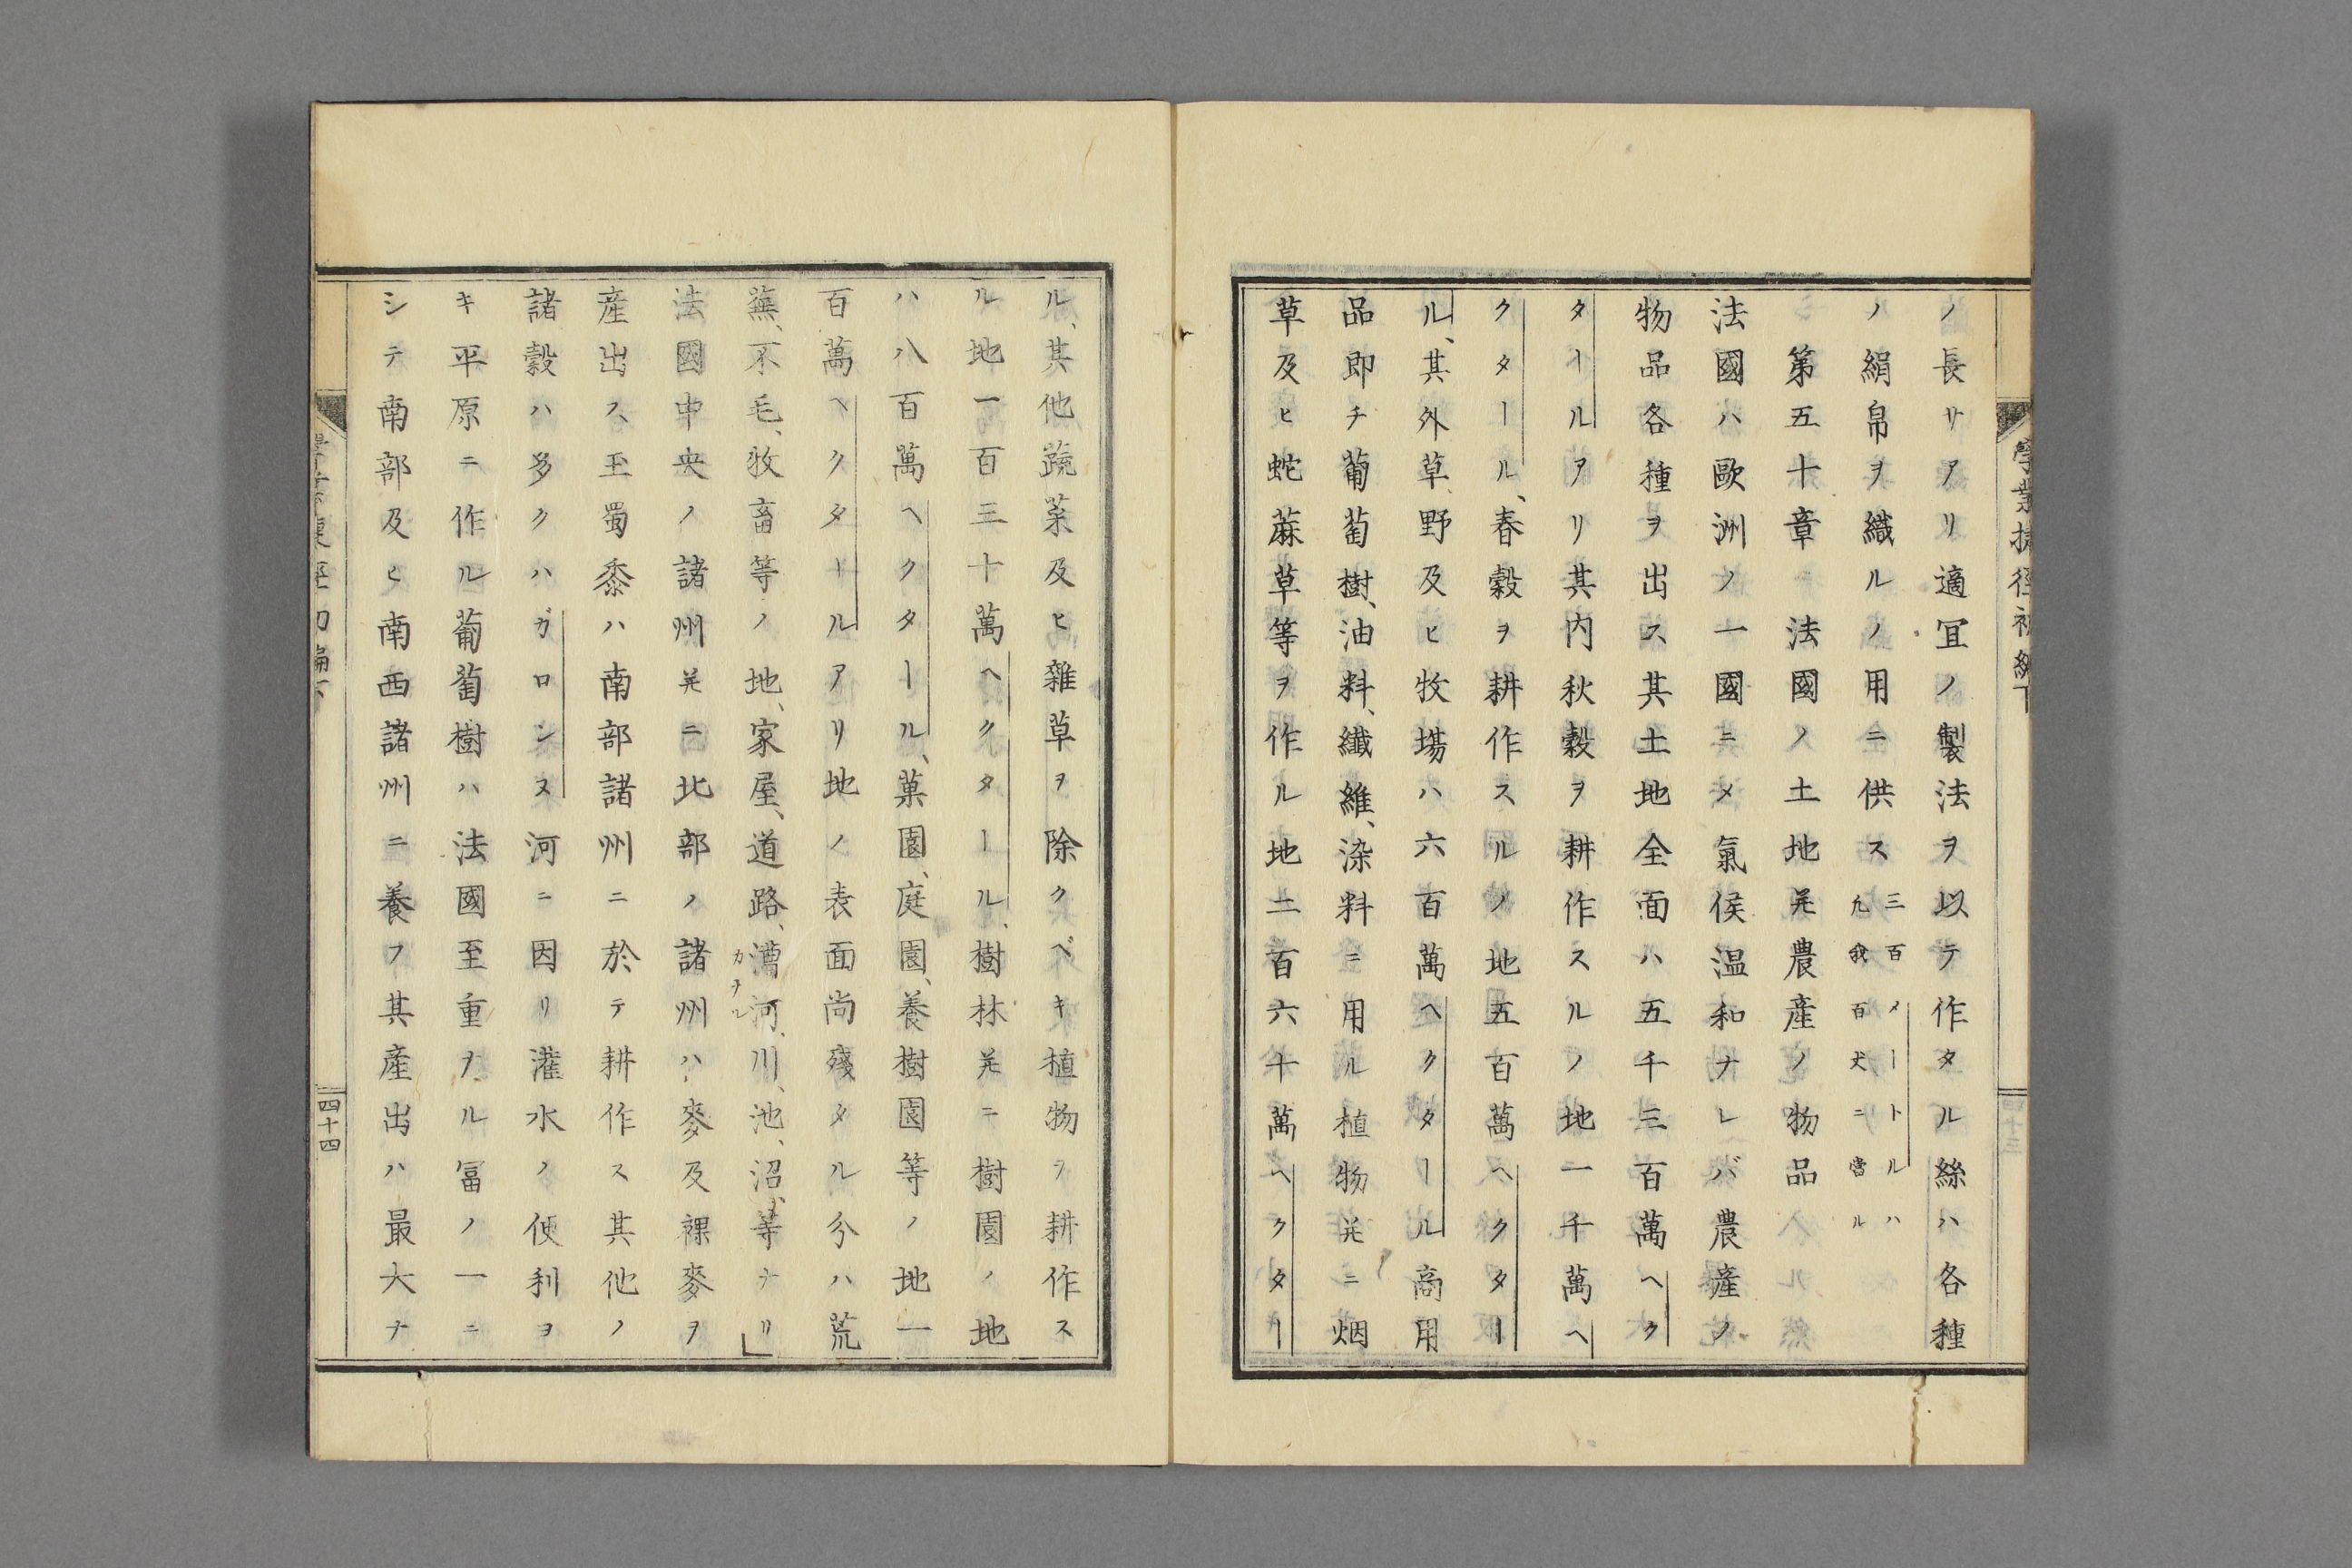 ノ長サアリ適冝ノ製法ヲ以テ作タル絲ハ各種
ノ絹帛ヲ織ルノ用ニ供ス三百メートルハ
凢我百丈ニ當ル
第五十章 法國ノ土地并農産ノ物品
法國ハ歐洲ノ一國ニメ氣侯温和ナレバ農産ノ
物品各種ヲ出ス其土地全面ハ五千三百萬ヘク
タールアリ其内秋穀ヲ耕作スルノ地一千萬ヘ
クタール、春穀ヲ耕作スルノ地五百萬ヘクター
ル、其外草野及ヒ牧塲ハ六百萬ヘクタール商用
品即チ葡萄樹、油料、纖維、染料ニ用ル植物并ニ烟
草及ヒ蛇蔴草等ヲ作ル地二百六十萬ヘクター
ル、其他蔬菜及ヒ雜草ヲ除クベキ植物ヲ耕作ス
ル地一百三十萬ヘクタール、樹林并ニ樹園ノ地
ハ八百萬ヘクタール、菓園、庭園、養樹園等ノ地一
百萬ヘクタールアリ地ノ表面尚殘タル分ハ荒
蕪、不毛、牧畜等ノ地、家屋、道路、漕河、川、池、沼、等ナリ
カナル
法國中央ノ諸州并ニ北部ノ諸州ハ麥及裸麥ヲ
産出ス、玉蜀黍ハ南部諸州ニ於テ耕作ス其他ノ
諸穀ハ多クハガロンヌ河ニ因リ灌水ノ便利ヲ
キ平原ニ作ル葡萄樹ハ法國至重ナル冨ノ一ニ
シテ南部及ヒ南西諸州ニ養フ其産出ハ最大ナ
四十四